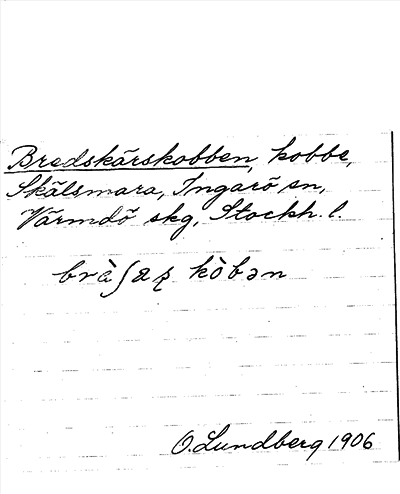 Bredskärskobben, kobbe,
Skälsmara, Ingarö sn,
Värmdö skg, Stockh. l.
brὰʃæʂ kòbən
O. Lundberg 1906